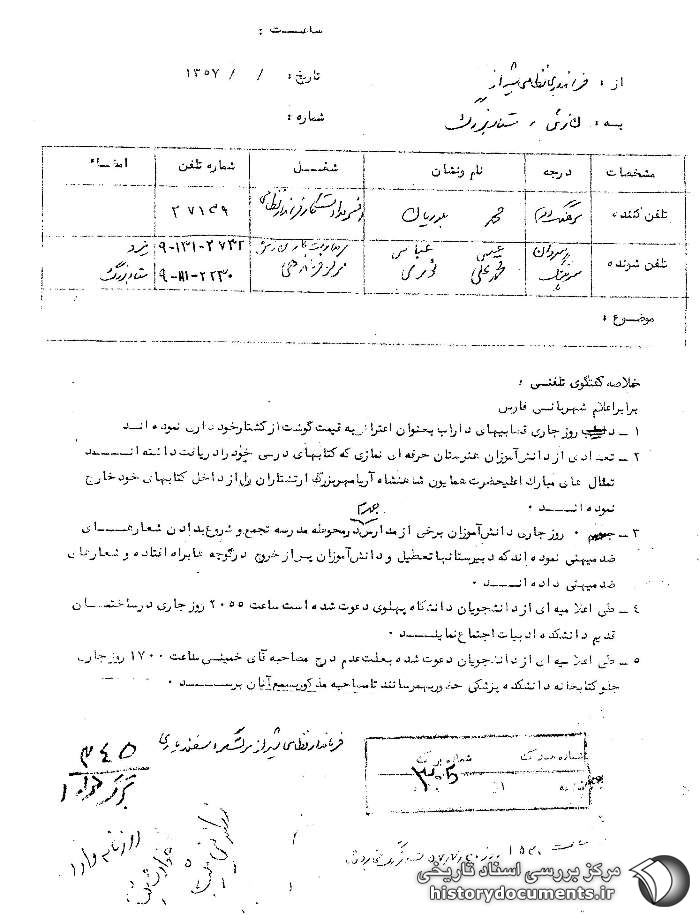 ساعت :
تاریخ : / / ۱۳۵۷
از : فرمانداری نظامی شیراز
شماره :
به : ستاد بزرگ
مشخصات درجه نام ونشان شغل شماره تلفن امضاء
تلفن کننده سرهنگ دوم ۳۷۱۳۹
تلفن شونده عباسی ۹-۱۳۱-۲۷۳۲ یزد
سرهنگ محمدعلی مرکز فرماندهی ۹-۸۱-۲۲۳۰ ستاد بزرگ
موضوع :
خلاصه گفتگوی تلفنی :
برابر اعلام شهربانی فارس
۱ – روز جاری قصابیهای داراب بعنوان اعتراض به قیمت گوشت از کشتار خود داری نموده اند
۲ – تعدادی از دانش آموزان هنرستان حرفه ای نمازی که کتابهای درسی خود را دریافت داشته اند
تمثال های مبارک اعلیحضرت همایون شاهنشاه آریامهر بزرگ ارتشتاران را از داخل کتابهای خود خارج
نموده اند ۰
۳ – ۰ روز جاری دانش آموزان برخی از مدارس در محوطه مدرسه تجمع و شروع بدادن شعارهای
ضد میهنی نموده اند که دبیرستانها تعطیل و دانش آموزان پس از خروج در کوچه ها براه افتاده و شعارهای
ضد میهنی داده اند ۰
۴ – طی اعلامیه ای از دانشجویان دانشگاه پهلوی دعوت شده است ساعت ۲۰۵۵ روز جاری در ساختمان
قدیم دانشکده ادبیات اجتماع نمایند ۰
۵ – طی اعلامیه ای از دانشجویان دعوت شده بعلت عدم درج مصاحبه آقای خمینی ساعت ۱۷۰۰ روز جاری
جلو کتابخانه دانشکده پزشکی حضور بهم رسانند تا مصاحبه مذکور بسمع آنان برسد ۰
فرماندار نظامی شیراز سرلشکر اسفندیاری
شماره
۳۰۵
۳۴۵
مرکز بررسی اسناد تاریخی
historydocuments.ir